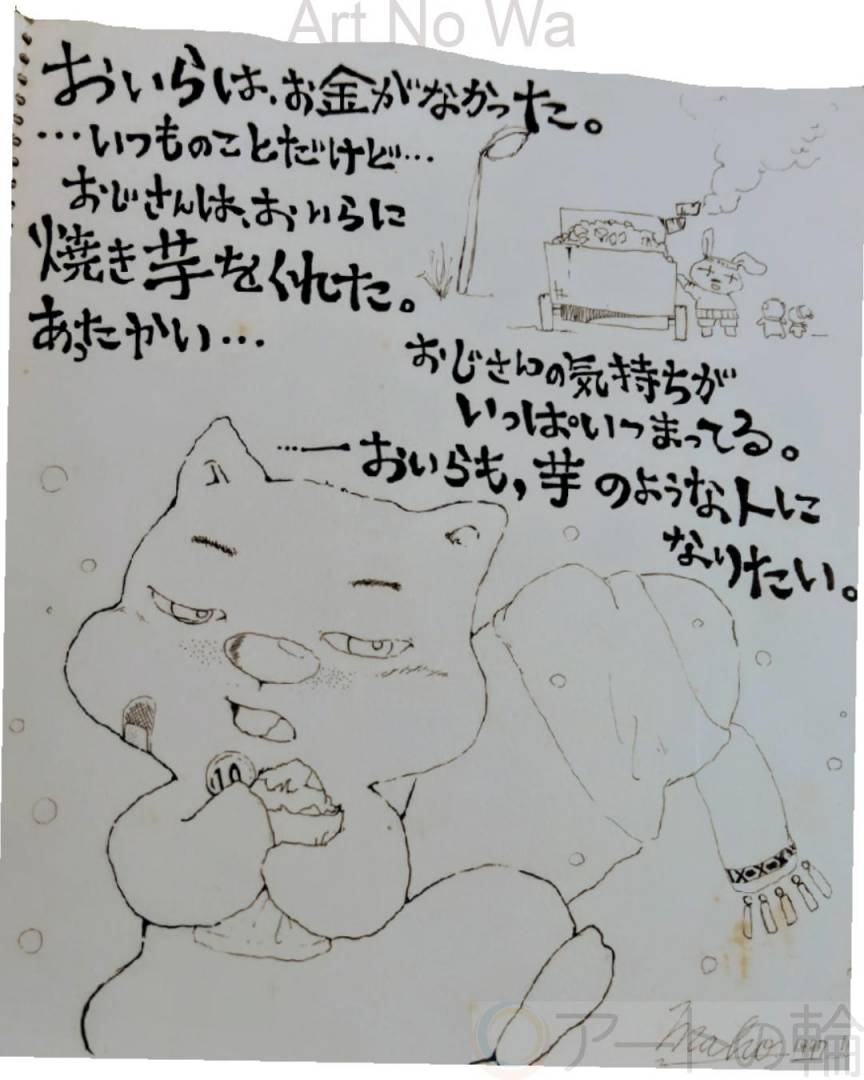 Art No Wa
おいらは、お金がなかった。
…いつものことだけど…
おじさんは、おいらに
焼き芋をくれた。
あったかい…
おじさんの気持ちが
いっぱいつまってる。
…ーおいらも，芋のような人に
なりたい。
10
アートの輪